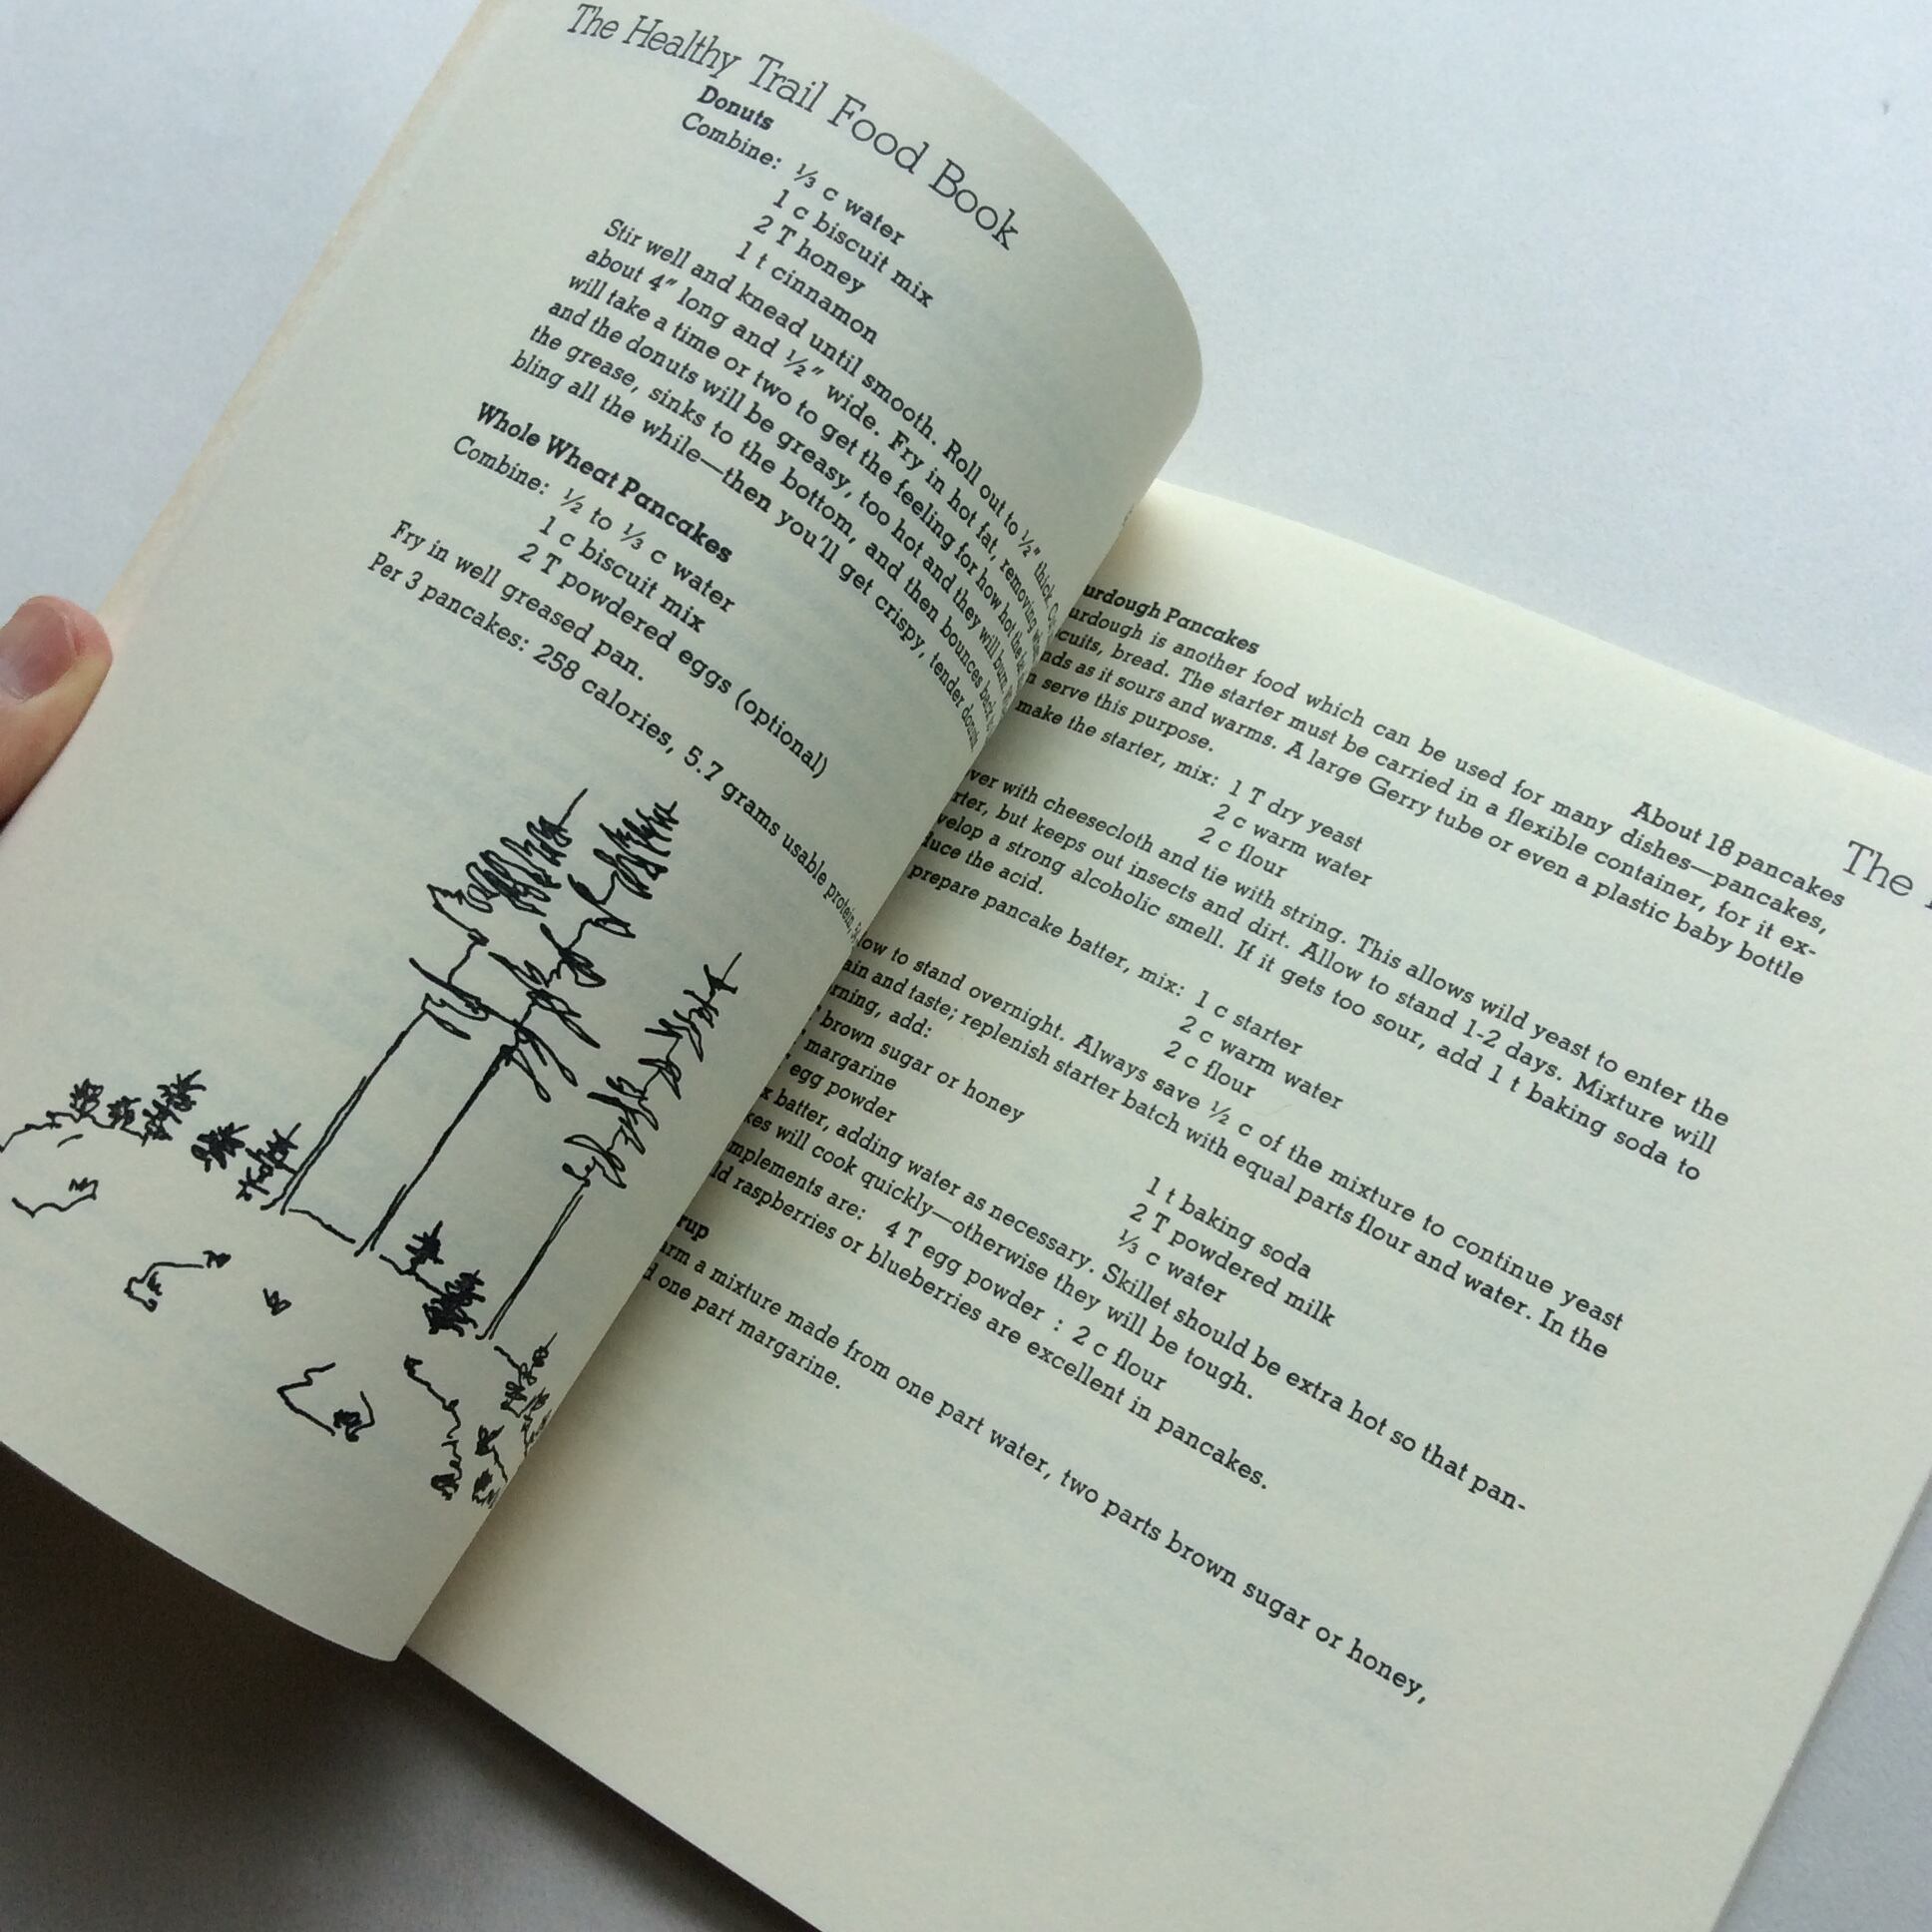 The Healthy Trail Food Book
Donuts
Combine: ⅓ c water
1 c biscuit mix
2 T honey
1 t cinnamon
Stir well and knead until smooth. Roll out to ½" thick.
about 4" long and ½" wide. Fry in hot fat, removing
will take a time or two to get the feeling for how hot the
and the donuts will be greasy, too hot and they will burn.
the grease, sinks to the bottom, and then bounces back
bling all the while—then you'll get crispy, tender donuts
Whole Wheat Pancakes
Combine: ½ to ⅓ c water
1 c biscuit mix
2 T powdered eggs (optional)
Fry in well greased pan.
Per 3 pancakes: 258 calories, 5.7 grams usable protein,
The
About 18 pancakes
urdough Pancakes
urdough is another food which can be used for many dishes—pancakes,
cuits, bread. The starter must be carried in a flexible container, for it ex-
nds as it sours and warms. A large Gerry tube or even a plastic baby bottle
n serve this purpose.
make the starter, mix: 1 T dry yeast
2 c warm water
2 c flour
ver with cheesecloth and tie with string. This allows wild yeast to enter the
rter, but keeps out insects and dirt. Allow to stand 1-2 days. Mixture will
velop a strong alcoholic smell. If it gets too sour, add 1 t baking soda to
duce the acid.
prepare pancake batter, mix: 1 c starter
2 c warm water
2 c flour
low to stand overnight. Always save ½ c of the mixture to continue yeast
ain and taste; replenish starter batch with equal parts flour and water. In the
rning, add:
brown sugar or honey 1 t baking soda
margarine 2 T powdered milk
egg powder ⅓ c water
x batter, adding water as necessary. Skillet should be extra hot so that pan-
kes will cook quickly—otherwise they will be tough.
mplements are: 4 T egg powder : 2 c flour
ld raspberries or blueberries are excellent in pancakes.
rup
arm a mixture made from one part water, two parts brown sugar or honey,
d one part margarine.